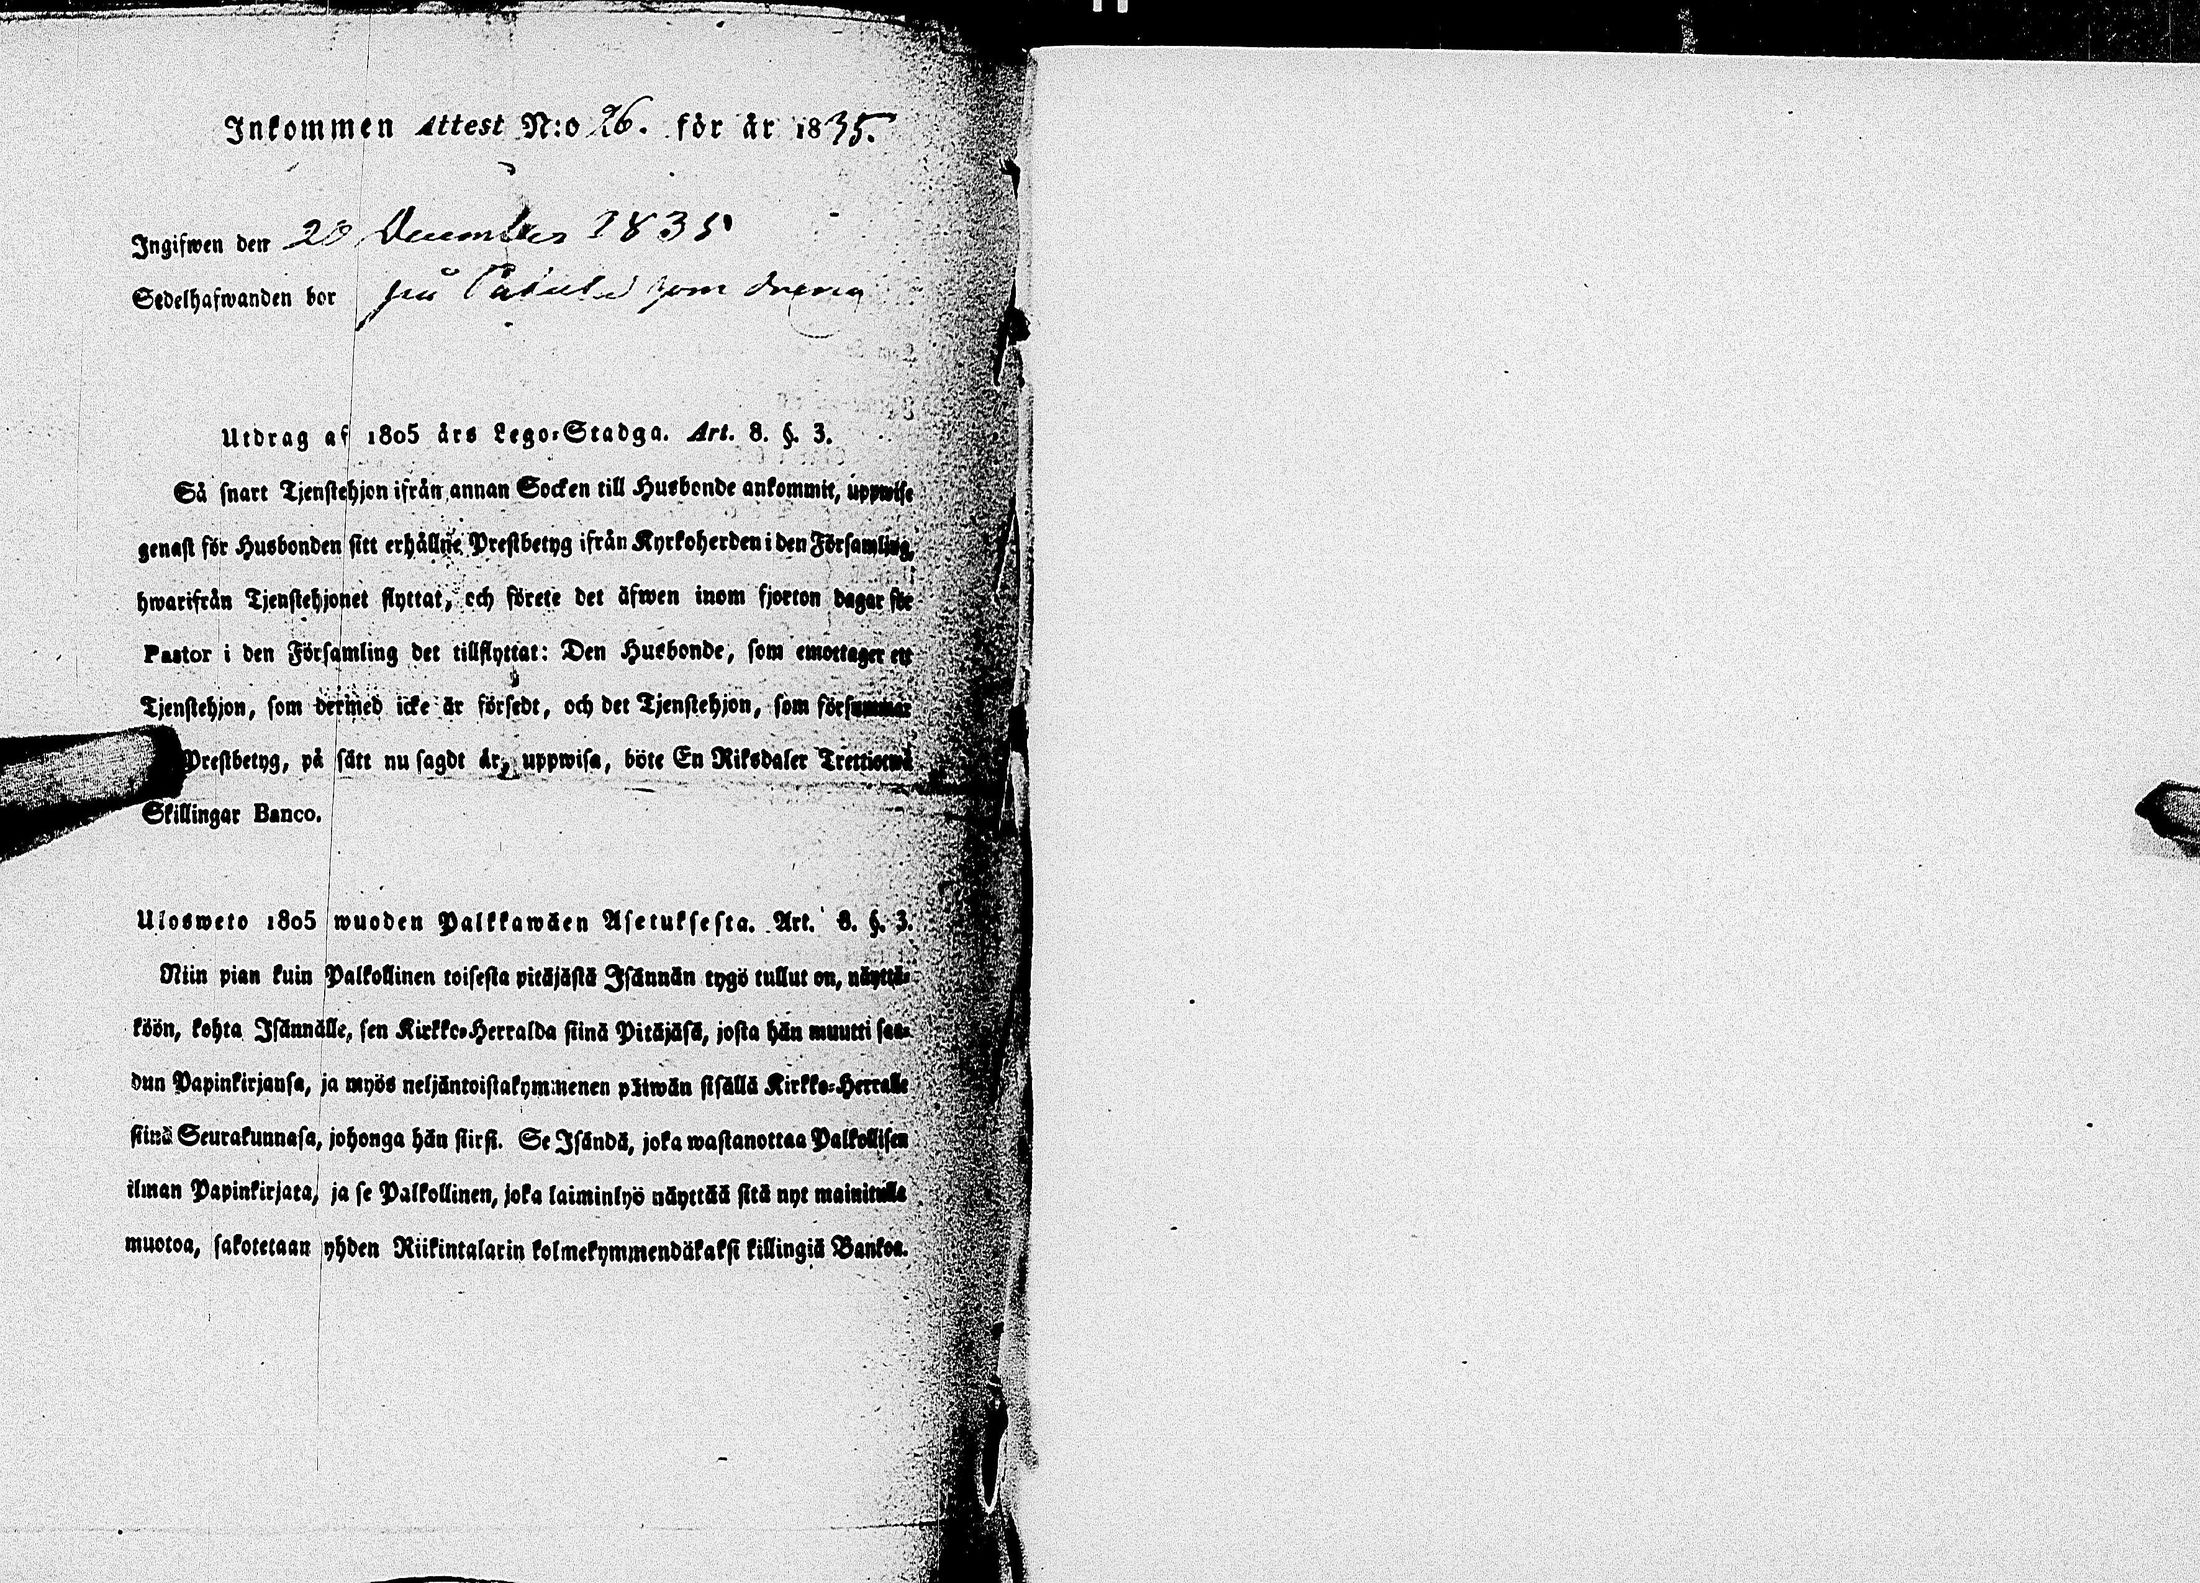 Inkommen Attest N:o 26. för år 1835.
Ingifwen den 20 December 1835
Sedelhafwanden bor på som dreng
Utdrag af 1805 års Lego-Stadga. Art. 8. §. 3.
Så snart Tjenstehjon ifrån annan Socken till Husbonde ankommit, uppwise
genast för Husbonden sitt erhållne Prestbetyg ifrån Kyrkoherden i den Församling,
hwarifrån Tjenstehjonet flyttat, och förete det äfwen inom fjorton dagar för
Pastor i den Församling det tillflyttat: Den Husbonde, som emottager ett
Tjenstehjon, som dermed icke är försedt, och det Tjenstehjon, som försummar
Prestbetyg, på sätt nu sagdt är, uppwisa, böte En Riksdaler Trettiotwå
Skillingar Banco.
Ulosweto 1805 wuoden Palkkawäen Asetuksesta. Art. 8. §. 3.
Niin pian kuin Palkollinen toisesta pitäjästä Isännän tygö tullut on, näyttä-
köön, kohta Isännälle, sen Kirkko-Herralda siinä Pitäjäsä, josta hän muutti saa-
dun Papinkirjansa, ja myös neljäntoistakymmenen päiwän sisällä Kirkko-Herralle
siinä Seurakunnasa, johonga hän siirsi. Se Isändä, joka wastanottaa Palkollisen
ilman Papinkirjata, ja se Palkollinen, joka laiminlyö näyttää sitä nyt mainitulla
muotoa, sakotetaan yhden Riikintalarin kolmekymmendäkaksi killingiä Bankoa.